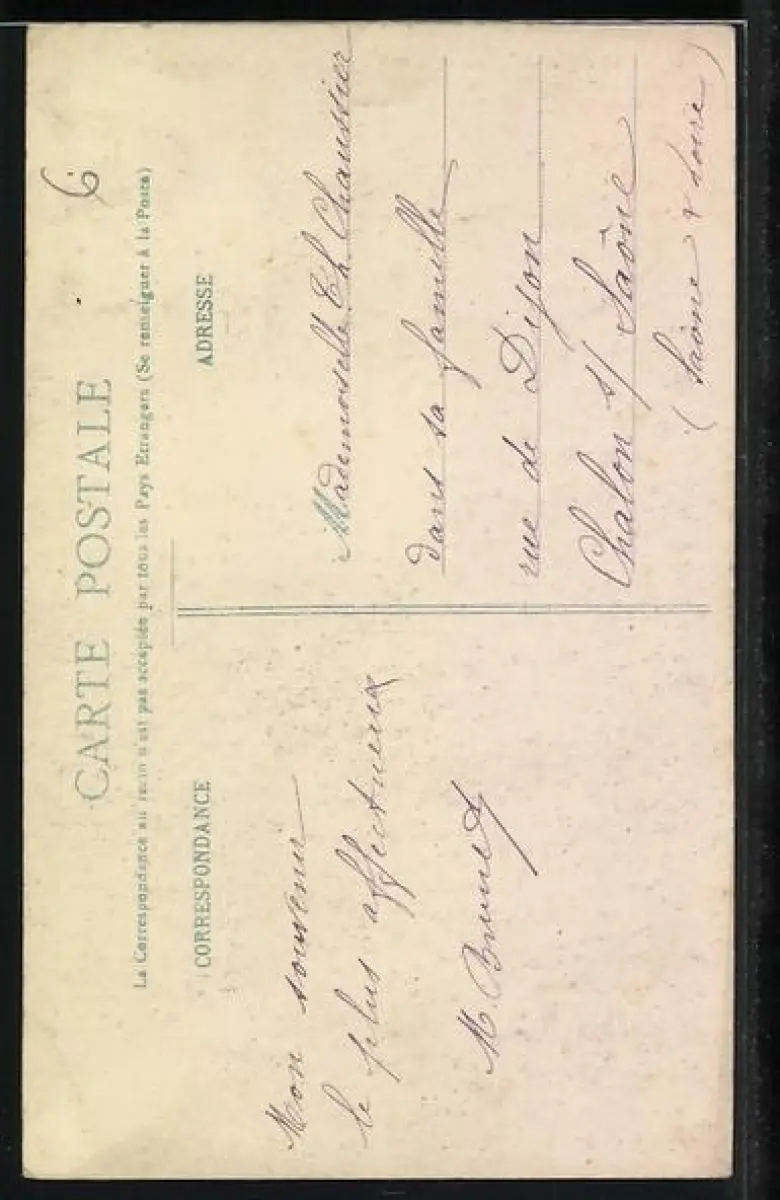 CARTE POSTALE
6
La Correspondance au recto n'est pas acceptée par tous les Pays Etrangers (Se renseigner à la Poste)
CORRESPONDANCE
Mon souvenir
le plus affectueux
M. Brunet
ADRESSE
Mademoiselle Th. Chaussier
dans sa famille
rue de Dijon
Chalon s/ Saône
(Saône & Loire)